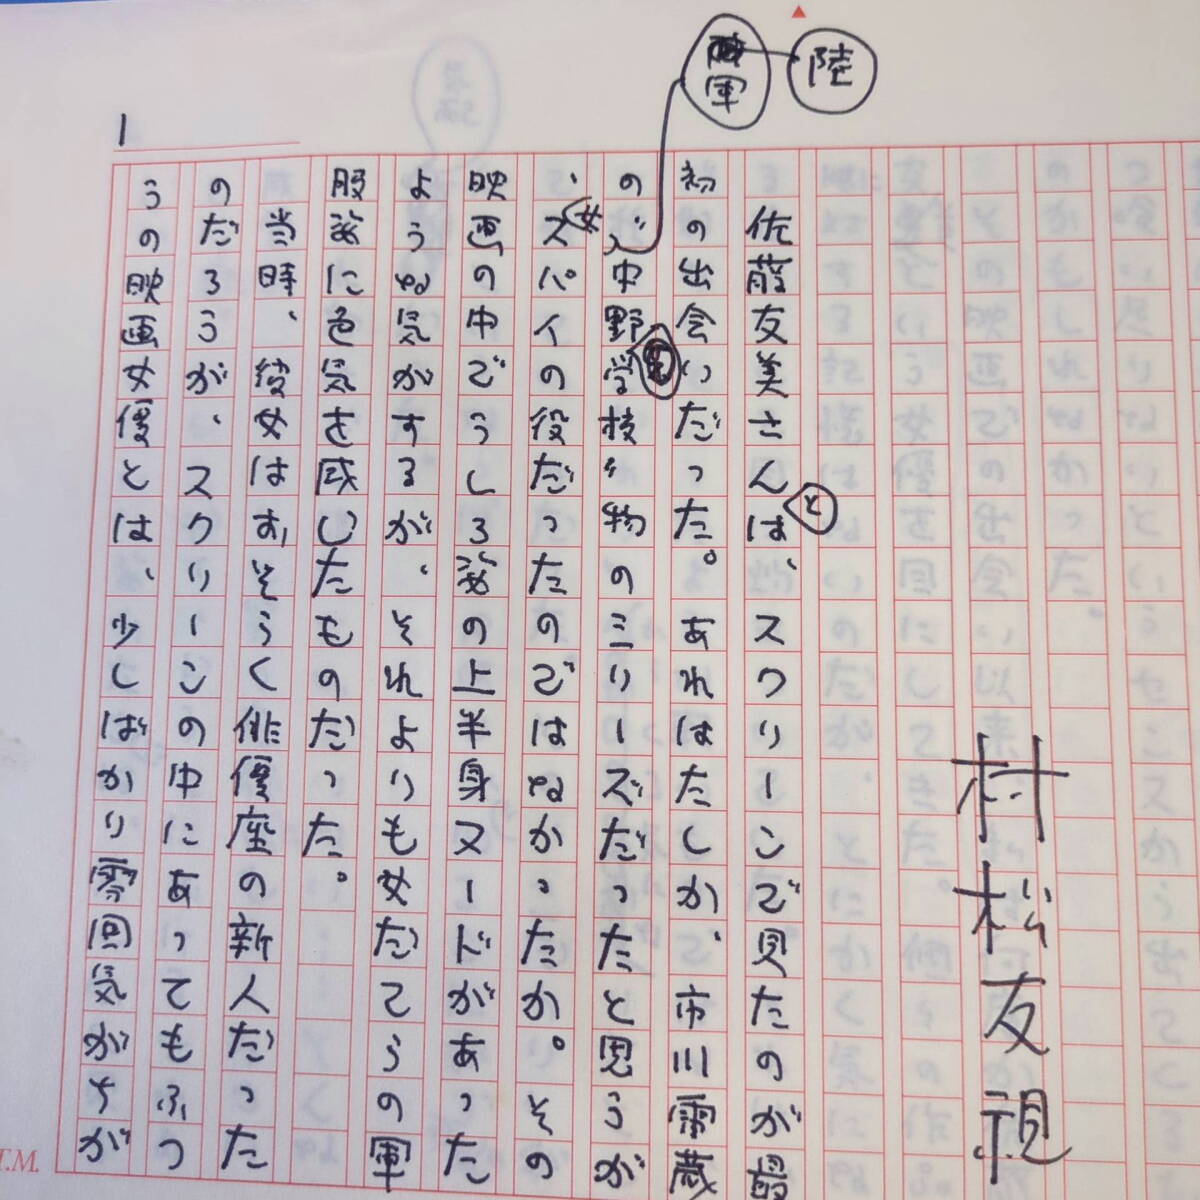 1
陸
軍
村松友視
佐藤友美さんは、スクリーンで見たのが最
と
初の出会いだった。あれはたしかで、市川雷蔵
の〝中野学校〟物のミリーズだったと思うが
、スパイの役だったのではなかったか。その
女
映画の中でうしろ姿の上半身ヌードがあった
ような気がするが、それよりも女だてらの軍
服姿に色気を感じたものだった。
当時、彼女はおそらく俳優座の新人だった
のだろうが、スクリーンの中にあってもふつ
うの映画女優とは、少しばかり雰囲気がちが
T.M.